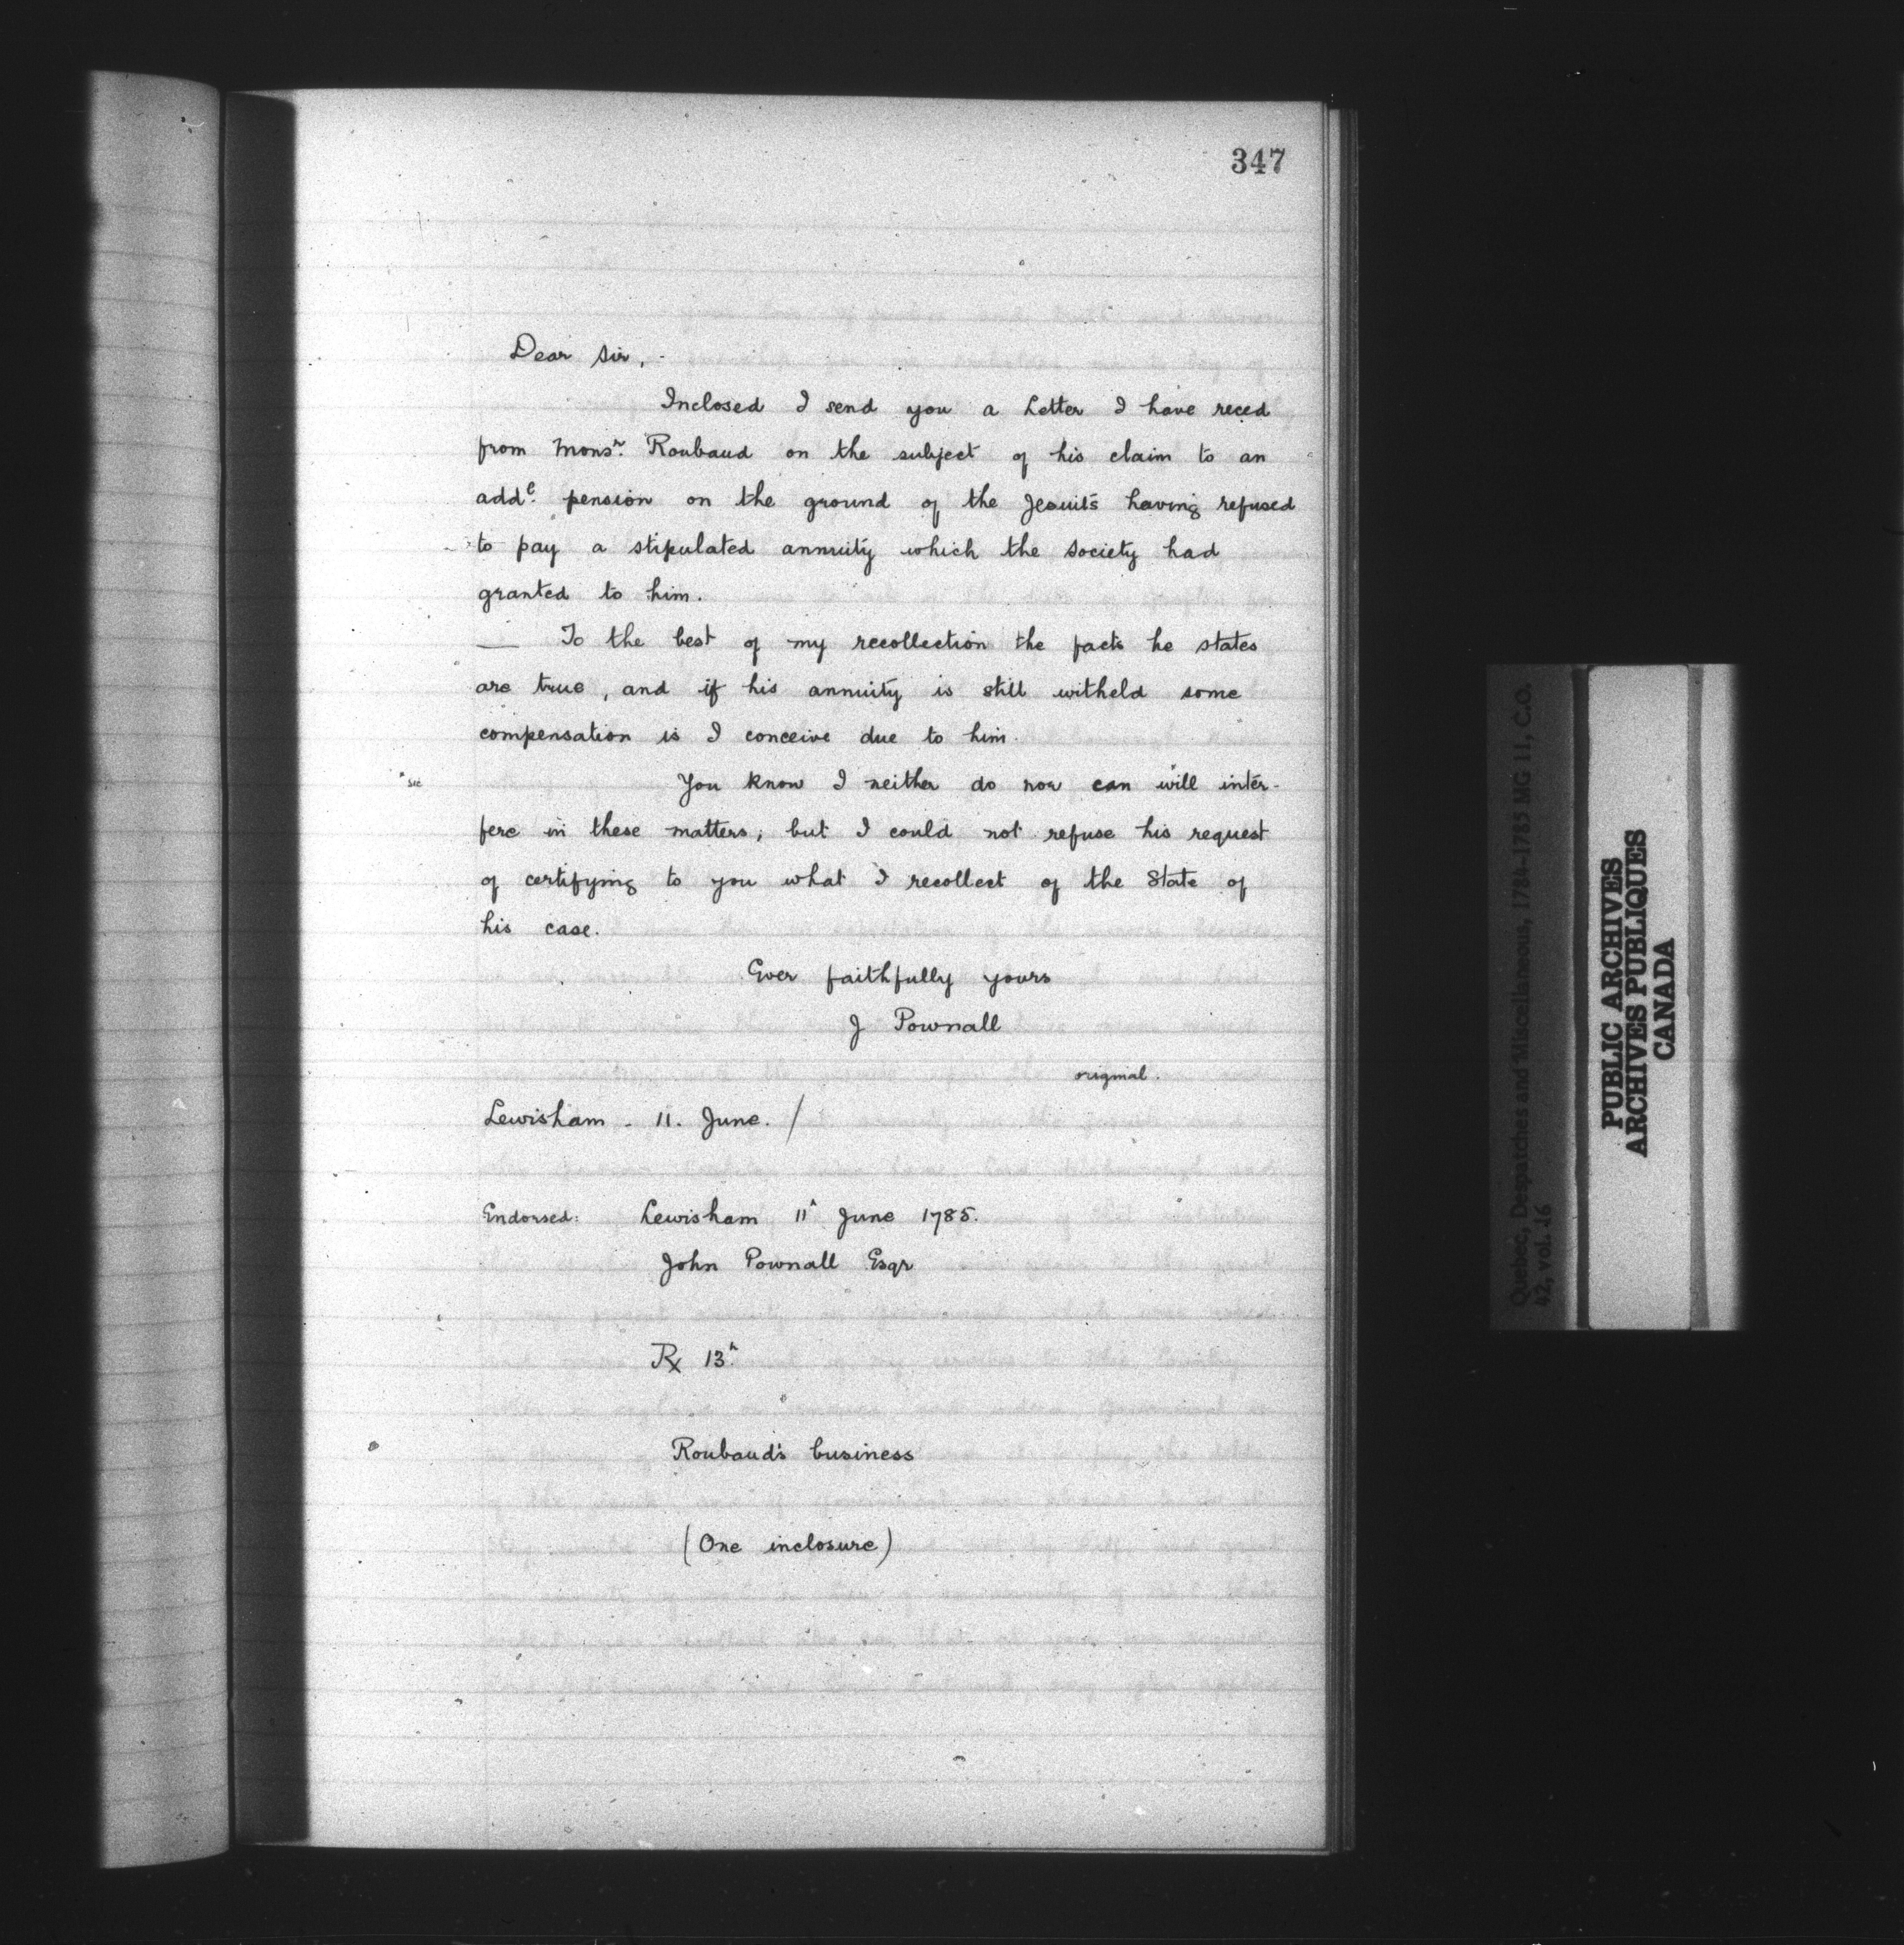 347
Dear Sir, -
Inclosed I send you a Letter I have reced
from Monsr. Roubaud on the subject of his claim to an
addl. pension on the ground of the Jesuits having refused
to pay a stipulated annuity which the Society had
granted to him.
— To the best of my recollection the facts he states
are true, and if his annuity is still witheld some
compensation is I conceive due to him.
* sic You know I neither do nor can * will inter-
fere in these matters; but I could not refuse his request
of certifying to you what I recollect of the State of
his case.
Ever faithfully yours
J Pownall
original.
Lewisham - 11. June. /
Endorsed: Lewisham 11h June 1785.
John Pownall Esqr
Rx 13h.
Roubaud's business
(One inclosure)
Quebec, Despatches and Miscellaneous, 1784-1785 MG 11, C.O.
42, vol. 16
PUBLIC ARCHIVES
ARCHIVES PUBLIQUES
CANADA